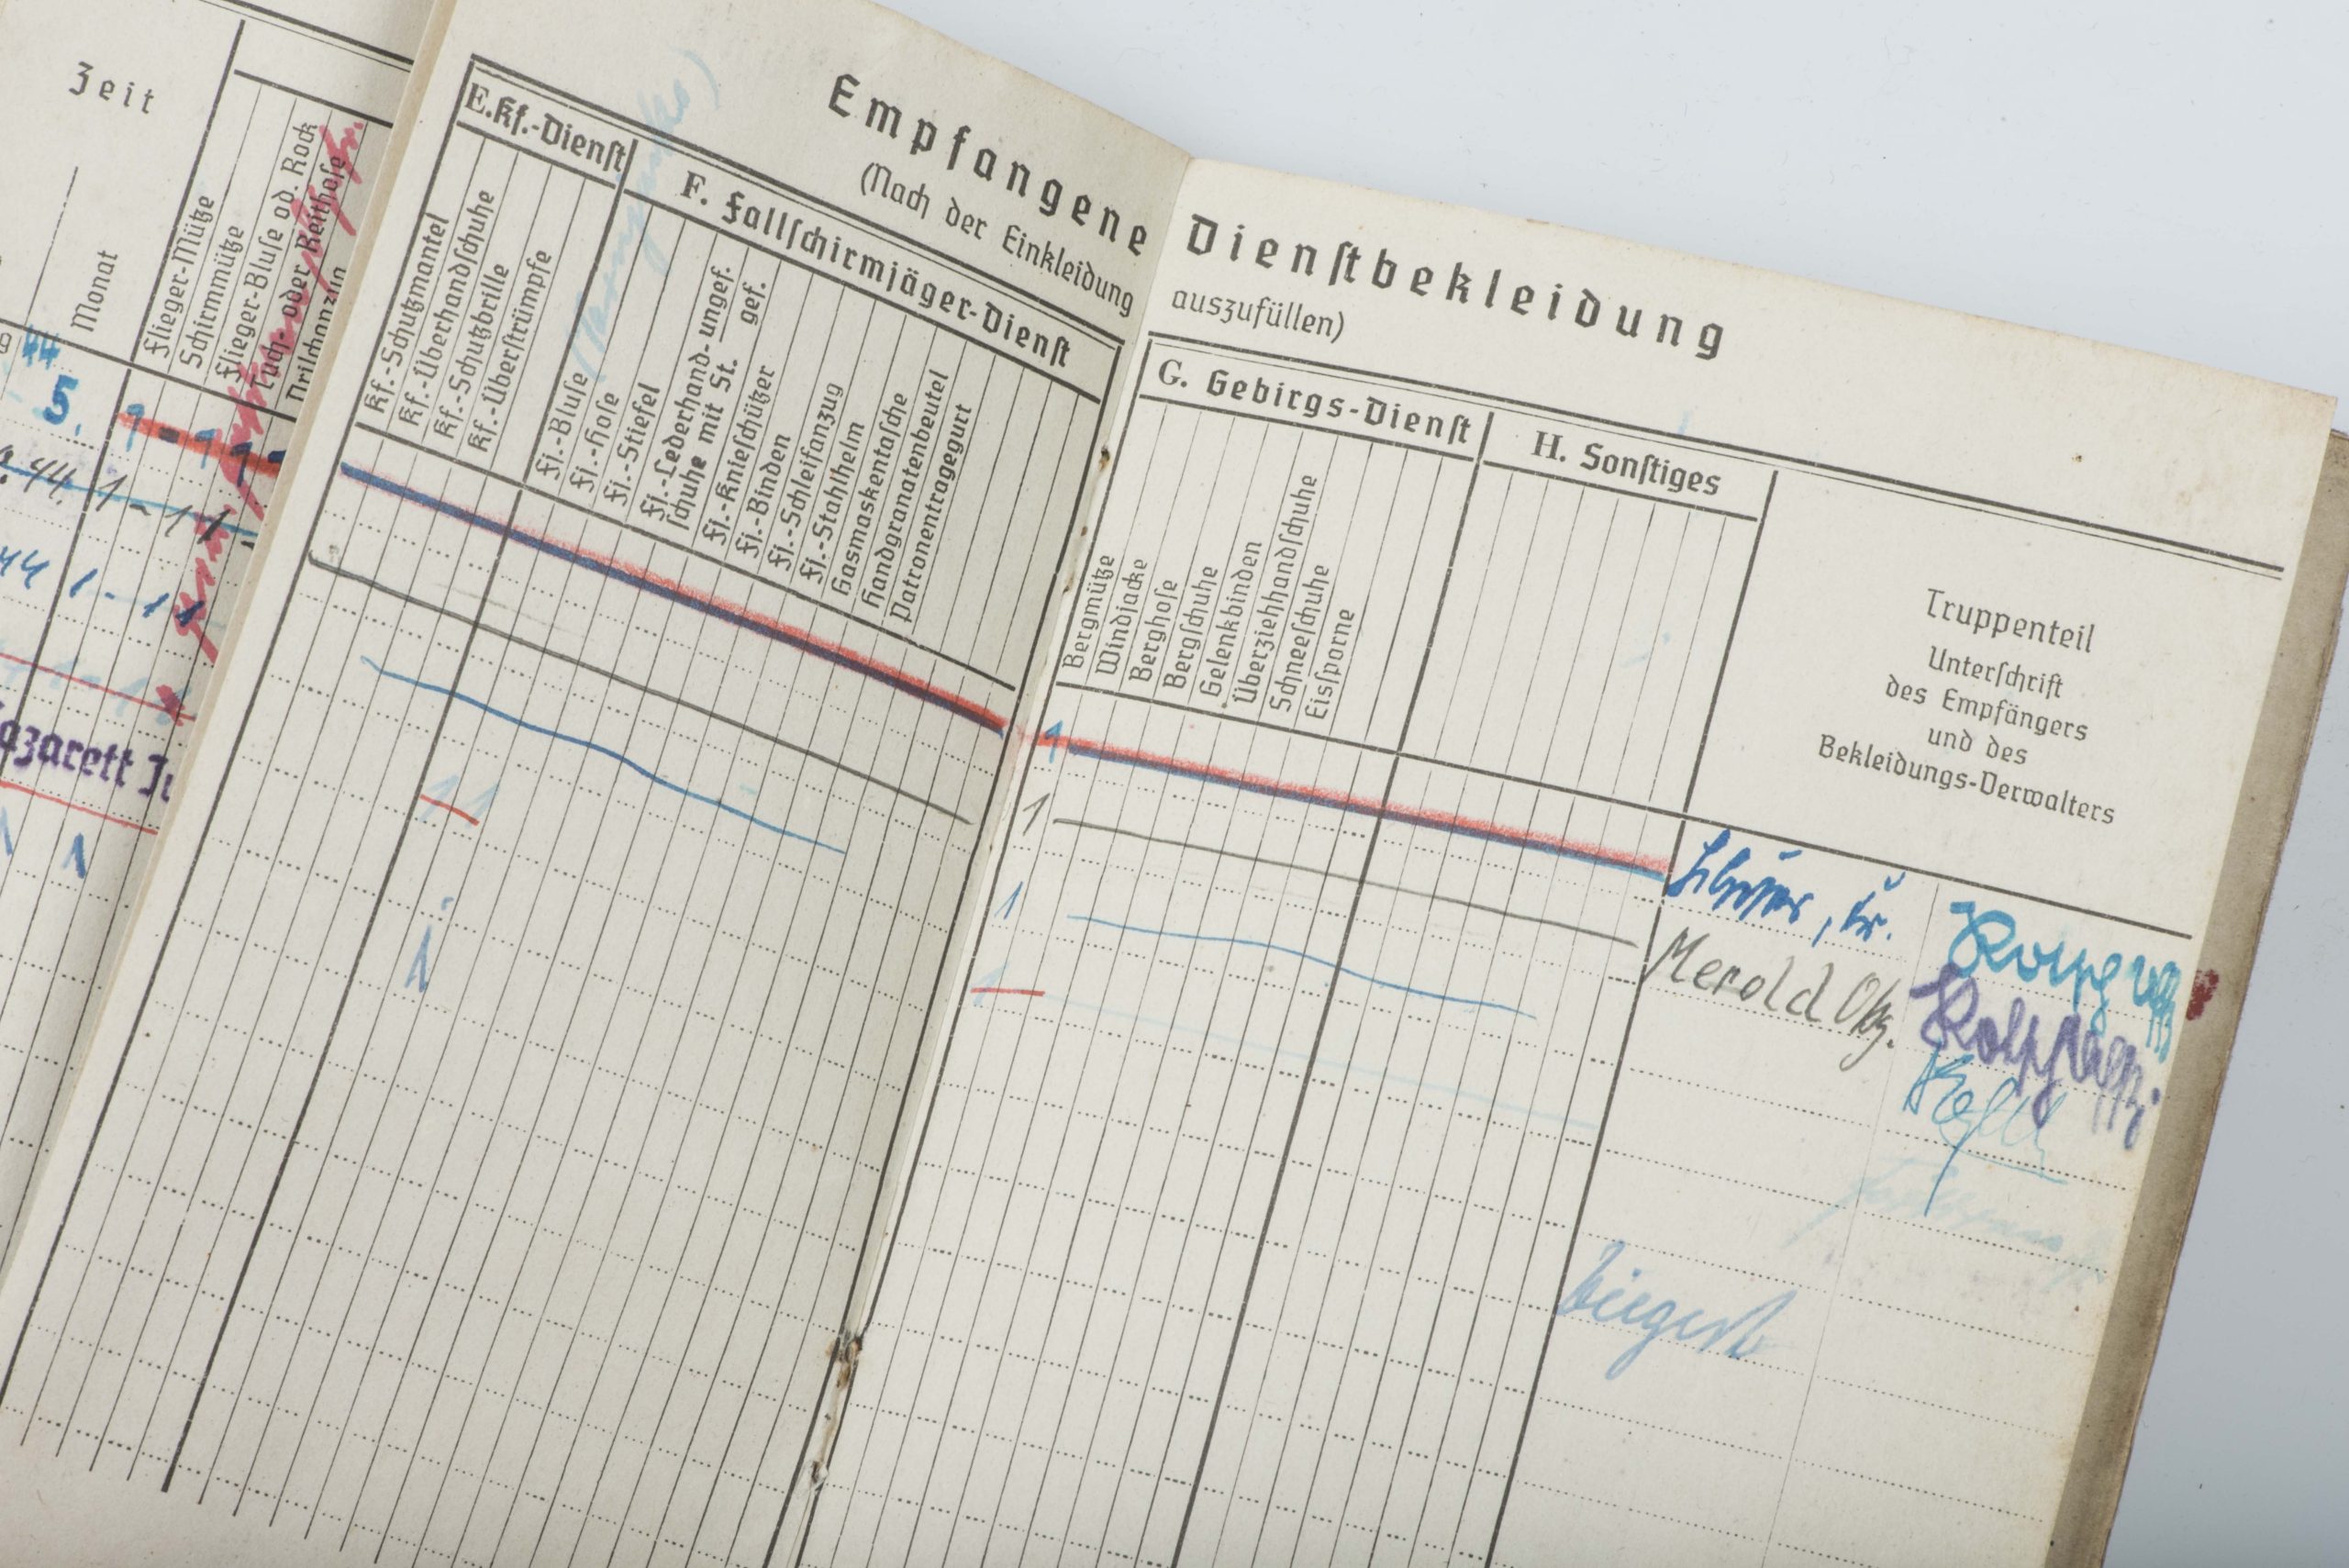 Zeit
Monat
Flieger-Mütze
Schirmmütze
Flieger-Bluse od. Rock
Tuch- oder Reithose
Drillichanzug
44
5.
1 - 1 1
.44. 1 - 1 1
44 1 - 1 1
azarett
1 1
Empfangene Dienstbekleidung
(Nach der Einkleidung auszufüllen)
E. Kf.-Dienst
Kf.-Schutzmantel
Kf.-Überhandschuhe
Kf.-Schutzbrille
Kf.-Überstrümpfe
F. Fallschirmjäger-Dienst
Fj.-Bluse
Fj.-Hose
Fj.-Stiefel
Fj.-Lederhand- ungef.
schuhe mit St. gef.
Fj.-Knieschützer
Fj.-Binden
Fj.-Schleifanzug
Fj.-Stahlhelm
Gasmaskentasche
Handgranatenbeutel
Patronentragegurt
1 1
1
G. Gebirgs-Dienst
Bergmütze
Windjacke
Berghose
Bergschuhe
Gelenkbinden
Überziehhandschuhe
Schneeschuhe
Eissporne
H. Sonstiges
Truppenteil
Unterschrift
des Empfängers
und des
Bekleidungs-Verwalters
1
1 Merold
1
1